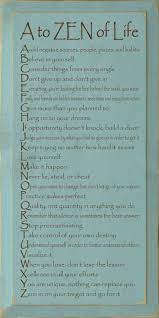 A to ZEN of Life
Avoid negative sources, people, places and habits
Believe in yourself
Consider things from every angle
Don't give up and don't give in
Everything you're looking for lies behind the mask you
Family and friends are hidden treasures, seek them and enjoy
Give more than you planned to
Hang on to your dreams
If opportunity doesn't knock, build a door
Judge your success by what you had to give up in order to
Keep trying no matter how hard it
Love yourself
Make it happen
Never lie, steal, or cheat
Open your arms to change, but don't let go of your
Practice makes perfect
Quality not quantity in anything you do
Remember that silence is sometimes the best answer
Stop procrastinating
Take control of your own destiny
Understand yourself in order to better understand
Visualize it
When you lose, don't lose the lesson
Xcellence in all your
You are unique, nothing can replace you
Zero in on your target and go for it